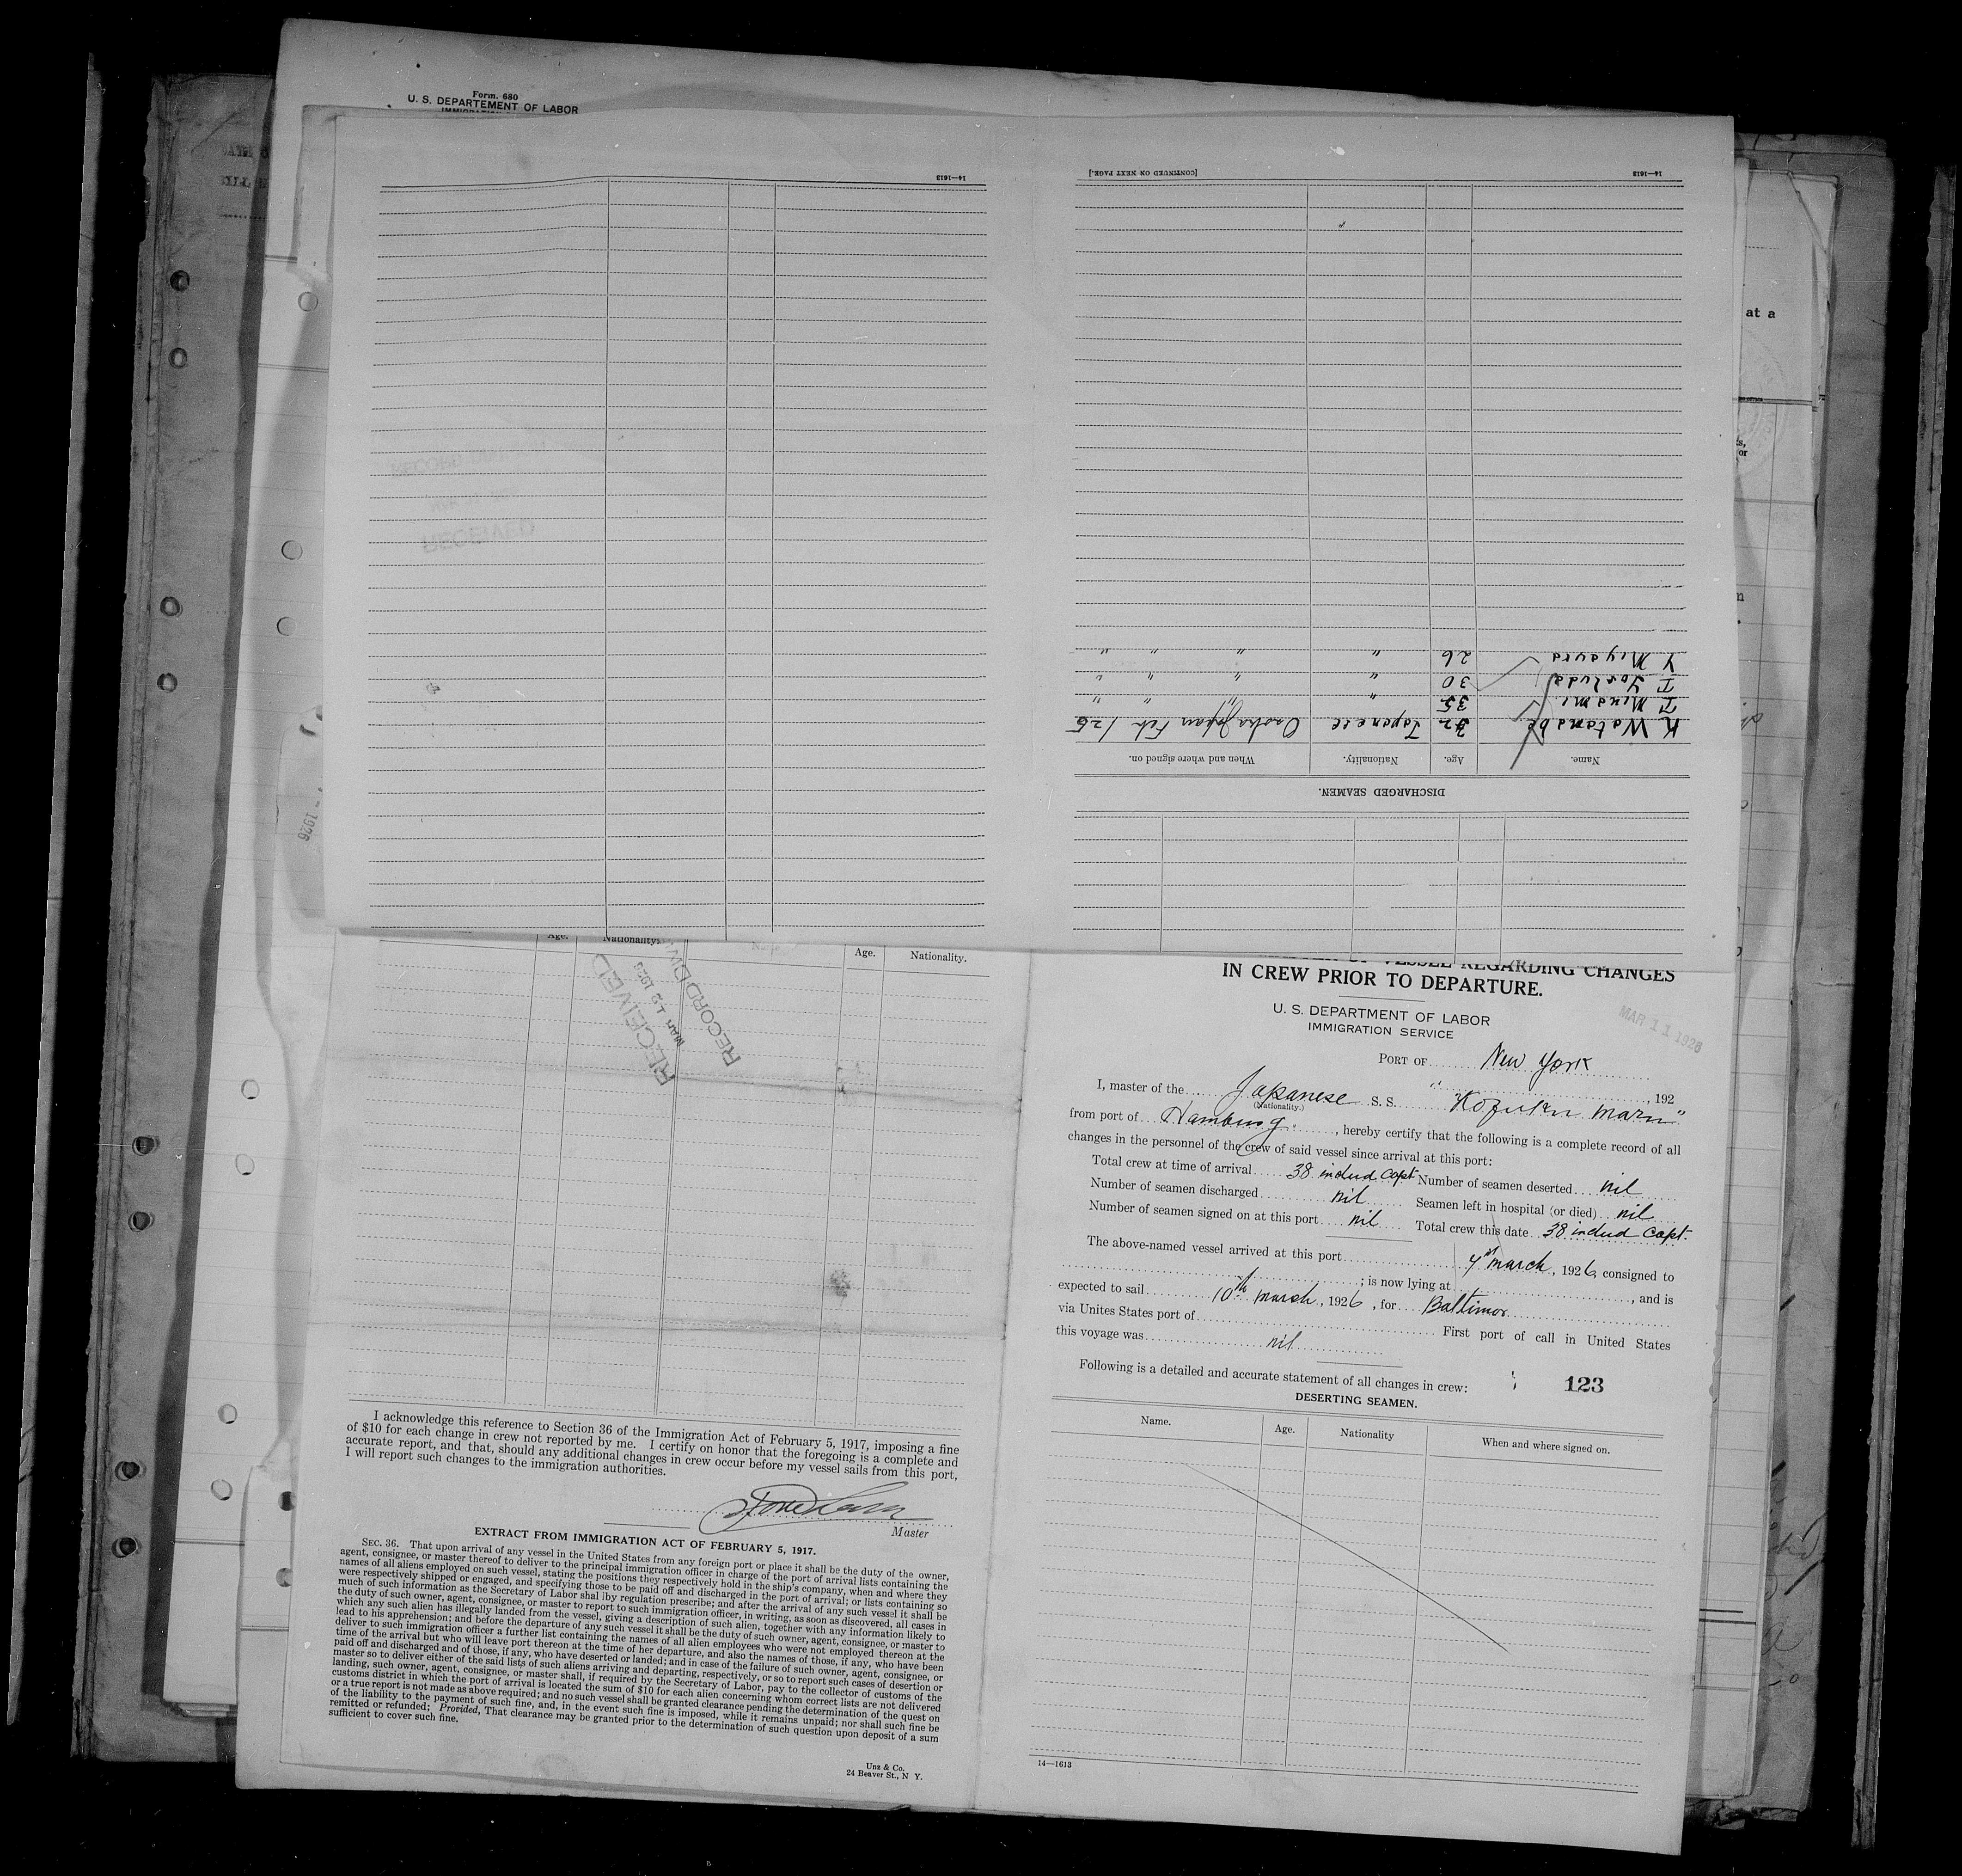 Form. 680
U. S. DEPARTEMENT OF LABOR
14—1613
[CONTINUED ON NEXT PAGE.]
14—1613
DISCHARGED SEAMEN.
Name. Age. Nationality. When and where signed on.
K Watanabe 32 Japanese Osaka Japan Feb 1 25
T Minami 35 " " " "
T 30 " " " "
Y 26 " " " "
at a
or
1926
Age. Nationality. Age. Nationality.
RECEIVED
MAR 12 1926
RECORD DIV.
I acknowledge this reference to Section 36 of the Immigration Act of February 5, 1917, imposing a fine
of $10 for each change in crew not reported by me. I certify on honor that the foregoing is a complete and
accurate report, and that, should any additional changes in crew occur before my vessel sails from this port,
I will report such changes to the immigration authorities.
Master
EXTRACT FROM IMMIGRATION ACT OF FEBRUARY 5, 1917.
SEC. 36. That upon arrival of any vessel in the United States from any foreign port or place it shall be the duty of the owner,
agent, consignee, or master thereof to deliver to the principal immigration officer in charge of the port of arrival lists containing the
names of all aliens employed on such vessel, stating the positions they respectively hold in the ship's company, when and where they
were respectively shipped or engaged, and specifying those to be paid off and discharged in the port of arrival; or lists containing so
much of such information as the Secretary of Labor shal lby regulation prescribe; and after the arrival of any such vessel it shall be
the duty of such owner, agent, consignee, or master to report to such immigration officer, in writing, as soon as discovered, all cases in
which any such alien has illegally landed from the vessel, giving a description of such alien, together with any information likely to
lead to his apprehension; and before the departure of any such vessel it shall be the duty of such owner, agent, consignee, or master to
deliver to such immigration officer a further list containing the names of all alien employees who were not employed thereon at the
time of the arrival but who will leave port thereon at the time of her departure, and also the names of those, if any, who have been
paid off and discharged and of those, if any, who have deserted or landed; and in case of the failure of such owner, agent, consignee, or
master so to deliver either of the said lists of such aliens arriving and departing, respectively, or so to report such cases of desertion or
landing, such owner, agent, consignee, or master shall, if required by the Secretary of Labor, pay to the collector of customs of the
customs district in which the port of arrival is located the sum of $10 for each alien concerning whom correct lists are not delivered
or a true report is not made as above required; and no such vessel shall be granted clearance pending the determination of the quest on
of the liability to the payment of such fine, and, in the event such fine is imposed, while it remains unpaid; nor shall such fine be
remitted or refunded; Provided, That clearance may be granted prior to the determination of such question upon deposit of a sum
sufficient to cover such fine.
Unz & Co.
24 Beaver St., N Y.
VESSEL REGARDING CHANGES
IN CREW PRIOR TO DEPARTURE.
U. S. DEPARTMENT OF LABOR
IMMIGRATION SERVICE
MAR 11 1926
PORT OF New York
, 192
I, master of the Japanese S. S. "Kofuku Maru"
(Nationality.)
from port of Hamburg. , hereby certify that the following is a complete record of all
changes in the personnel of the crew of said vessel since arrival at this port:
Total crew at time of arrival 38 includ Capt Number of seamen deserted nil
Number of seamen discharged nil Seamen left in hospital (or died) nil
Number of seamen signed on at this port nil Total crew this date 38 includ Capt.
The above-named vessel arrived at this port March, 1926, consigned to
; is now lying at , and is
expected to sail 10th March, 1926, for Baltimor
via Unites States port of First port of call in United States
this voyage was nil
Following is a detailed and accurate statement of all changes in crew:
123
DESERTING SEAMEN.
Name. Age. Nationality When and where signed on.
14—1613